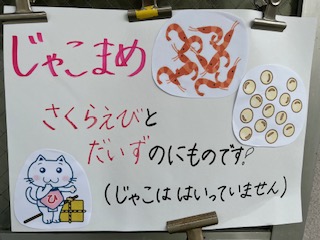 じゃこまめ
さくらえびと
だいずのにものです?
(じゃこは はいっていません)
ひ